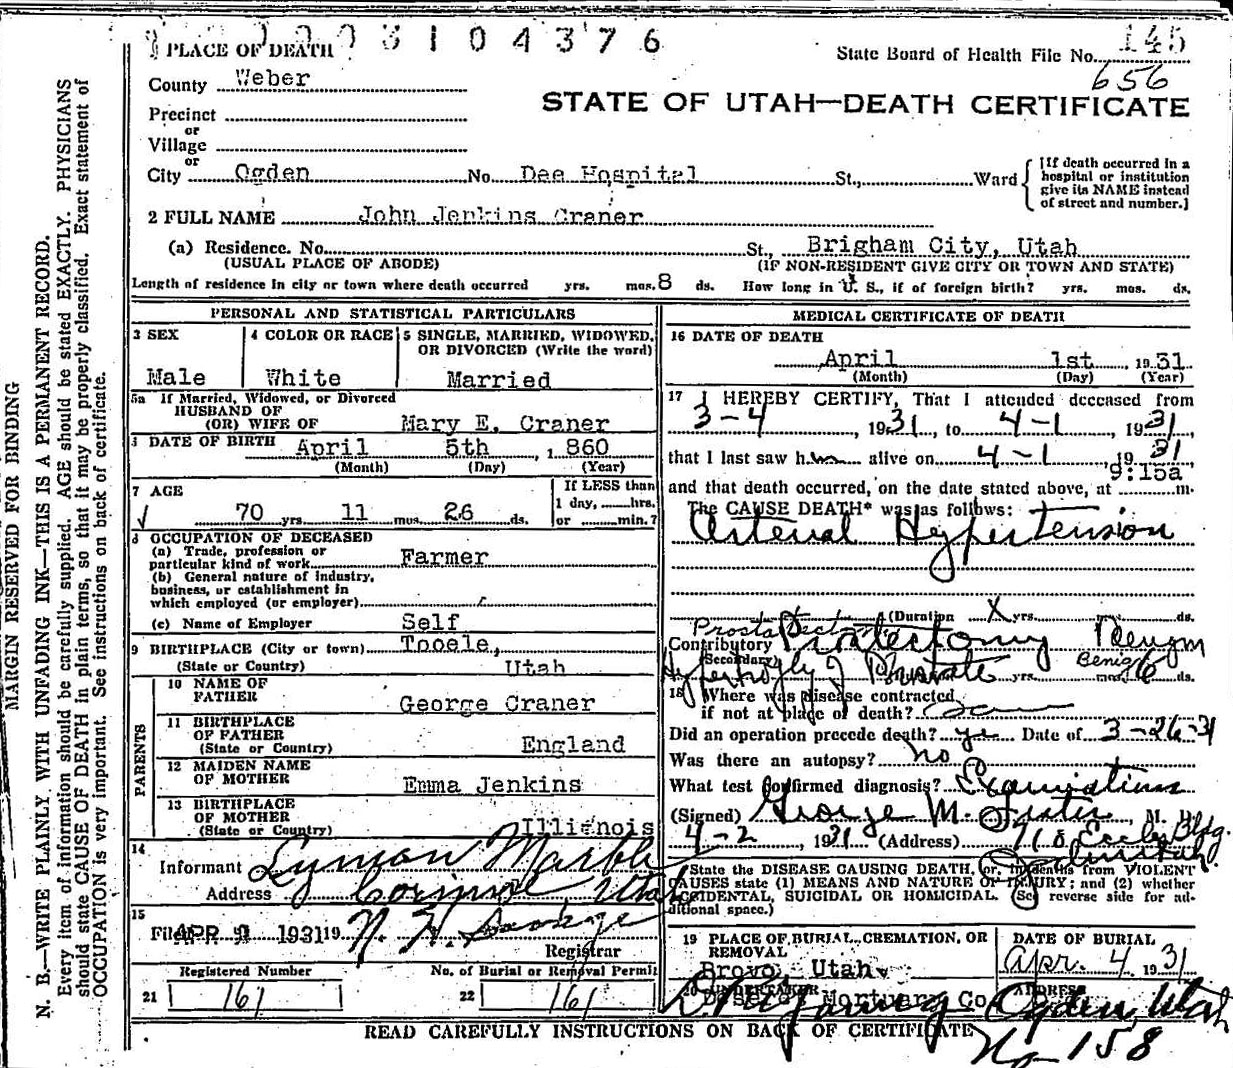 3104376
1 PLACE OF DEATH
State Board of Health File No. 145
656
County Weber
STATE OF UTAH—DEATH CERTIFICATE
Precinct
or
Village
or
City Ogden No. Dee Hospital St., Ward
[If death occurred in a
hospital or institution
give its NAME instead
of street and number.]
2 FULL NAME John Jenkins Craner
(a) Residence. No. St., Brigham City, Utah
(USUAL PLACE OF ABODE) (IF NON-RESIDENT GIVE CITY OR TOWN AND STATE)
Length of residence in city or town where death occurred yrs. mos. 8 ds. How long in U. S., if of foreign birth? yrs. mos. ds.
PERSONAL AND STATISTICAL PARTICULARS
3 SEX 4 COLOR OR RACE 5 SINGLE, MARRIED, WIDOWED,
OR DIVORCED (Write the word)
Male White Married
5a If Married, Widowed, or Divorced
HUSBAND OF
(OR) WIFE OF Mary E. Craner
DATE OF BIRTH April 5th , 1860
(Month) (Day) (Year)
7 AGE If LESS than
1 day, hrs.
70 yrs. 11 mos. 26 ds. or min.?
8 OCCUPATION OF DECEASED
(a) Trade, profession or
particular kind of work Farmer
(b) General nature of industry,
business, or establishment in
which employed (or employer)
(c) Name of Employer Self
9 BIRTHPLACE (City or town) Tooele,
(State or Country) Utah
PARENTS
10 NAME OF
FATHER George Craner
11 BIRTHPLACE
OF FATHER
(State or Country) England
12 MAIDEN NAME
OF MOTHER Emma Jenkins
13 BIRTHPLACE
OF MOTHER
(State or Country) Illienois
14
Informant Lyman Marble
Address Corinne Utah
15
Filed APR 1931 19
Registrar
Registered Number No. of Burial or Removal Permit
21 161 22 161
MEDICAL CERTIFICATE OF DEATH
16 DATE OF DEATH
April 1st , 1931
(Month) (Day) (Year)
17 I HEREBY CERTIFY, That I attended deceased from
3-4 , 1931, to 4-1 , 1931,
that I last saw him alive on 4-1 , 1931
9:15a
and that death occurred, on the date stated above, at m.
The CAUSE DEATH* was as follows:
Arterial Hypertension
(Duration X yrs. ds.
Contributory Prostatectomy Benign
(Secondary) Hypertrophy of Prostate yrs. mos. ds.
18 Where was disease contracted
if not at place of death?
Did an operation precede death? yes Date of 3-26-31
Was there an autopsy? No
What test confirmed diagnosis? Examinations
(Signed) George M. Fister, M. D.
4-2 , 1931 (Address) Eccles Bldg.
Ogden, Utah.
*State the DISEASE CAUSING DEATH, or, in deaths from VIOLENT
CAUSES state (1) MEANS AND NATURE OF INJURY; and (2) whether
ACCIDENTAL, SUICIDAL OR HOMICIDAL. (See reverse side for ad-
ditional space.)
19 PLACE OF BURIAL, CREMATION, OR
REMOVAL
Provo, Utah.
DATE OF BURIAL
Apr. 4 1931
20 UNDERTAKER ADDRESS
Deseret Mortuary Co Ogden, Utah
No 158
READ CAREFULLY INSTRUCTIONS ON BACK OF CERTIFICATE
MARGIN RESERVED FOR BINDING
N. B.—WRITE PLAINLY WITH UNFADING INK—THIS IS A PERMANENT RECORD.
Every item of information should be carefully supplied. AGE should be stated EXACTLY. PHYSICIANS
should state CAUSE OF DEATH in plain terms, so that it may be properly classified. Exact statement of
OCCUPATION is very important. See instructions on back of certificate.